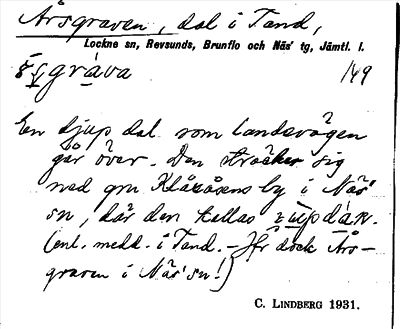 Årsgraven, dal i Tand,
Lockne sn, Revsunds, Brunflo och Näs' tg, Jämtl. l.
gráva 149
En djup dal som landsvägen
går över. Den sträcker sig
ned gm Klåxåsens by i Näs'
sn, där den kallas
(enl. medd. i Tand. – Jfr dock Års-
graven i Näs' sn!)
C. LINDBERG 1931.